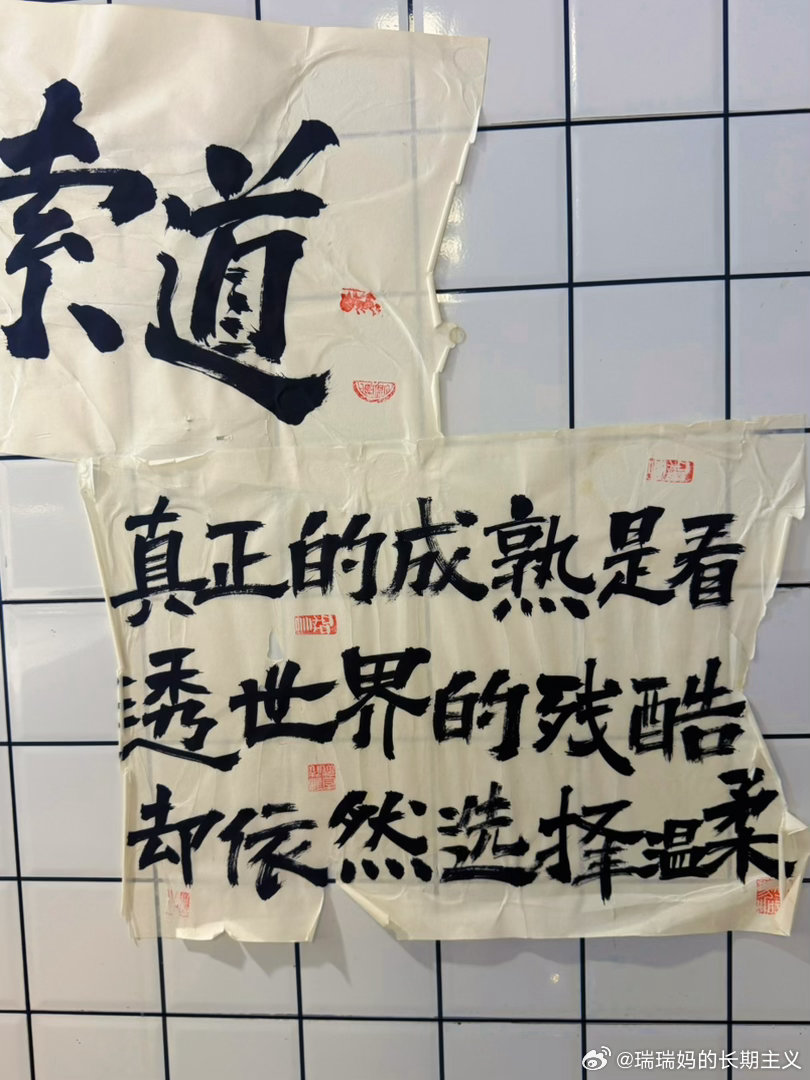 索道
真正的成熟是看
透世界的残酷
却依然选择温柔
@瑞瑞妈的长期主义